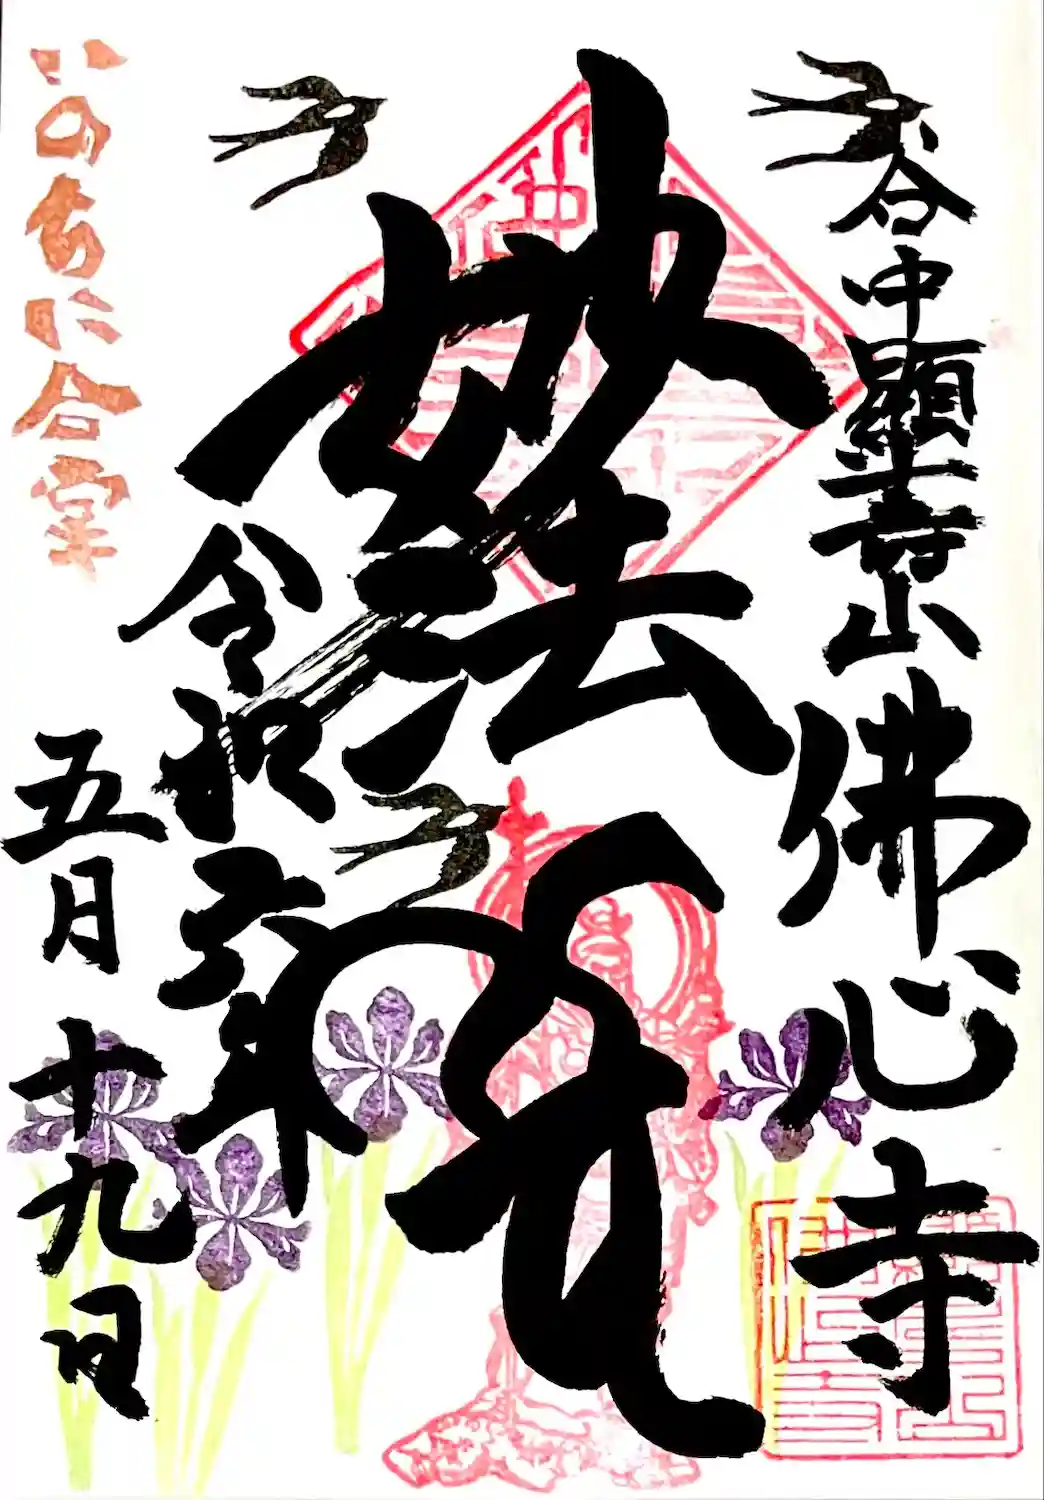 谷中顯壽山佛心寺
妙法
令和六年
五月十九日
いのちに合掌